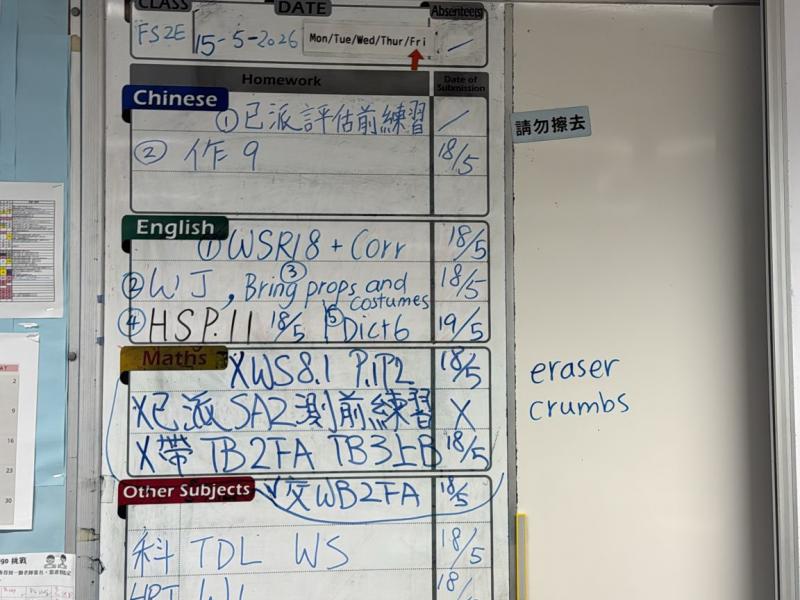 CLASS DATE Absentee(s)
FS2E 15-5-2026 Mon/Tue/Wed/Thur/Fri /
Homework Date of Submission
Chinese
① 已派評估前練習 /
② 作 9 18/5
English
① WSR18 + Corr 18/5
② WJ, ③ Bring props and costumes 18/5
④ HSP.11 18/5 ⑤ Dict6 19/5
Maths
X WS8.1 P.1P2 18/5
X 已派 SA2測前練習 X
X 帶 TB2FA TB3上B 18/5
Other Subjects
✓ 交 WB2FA 18/5
科 TDL WS 18/5
請勿擦去
eraser
crumbs